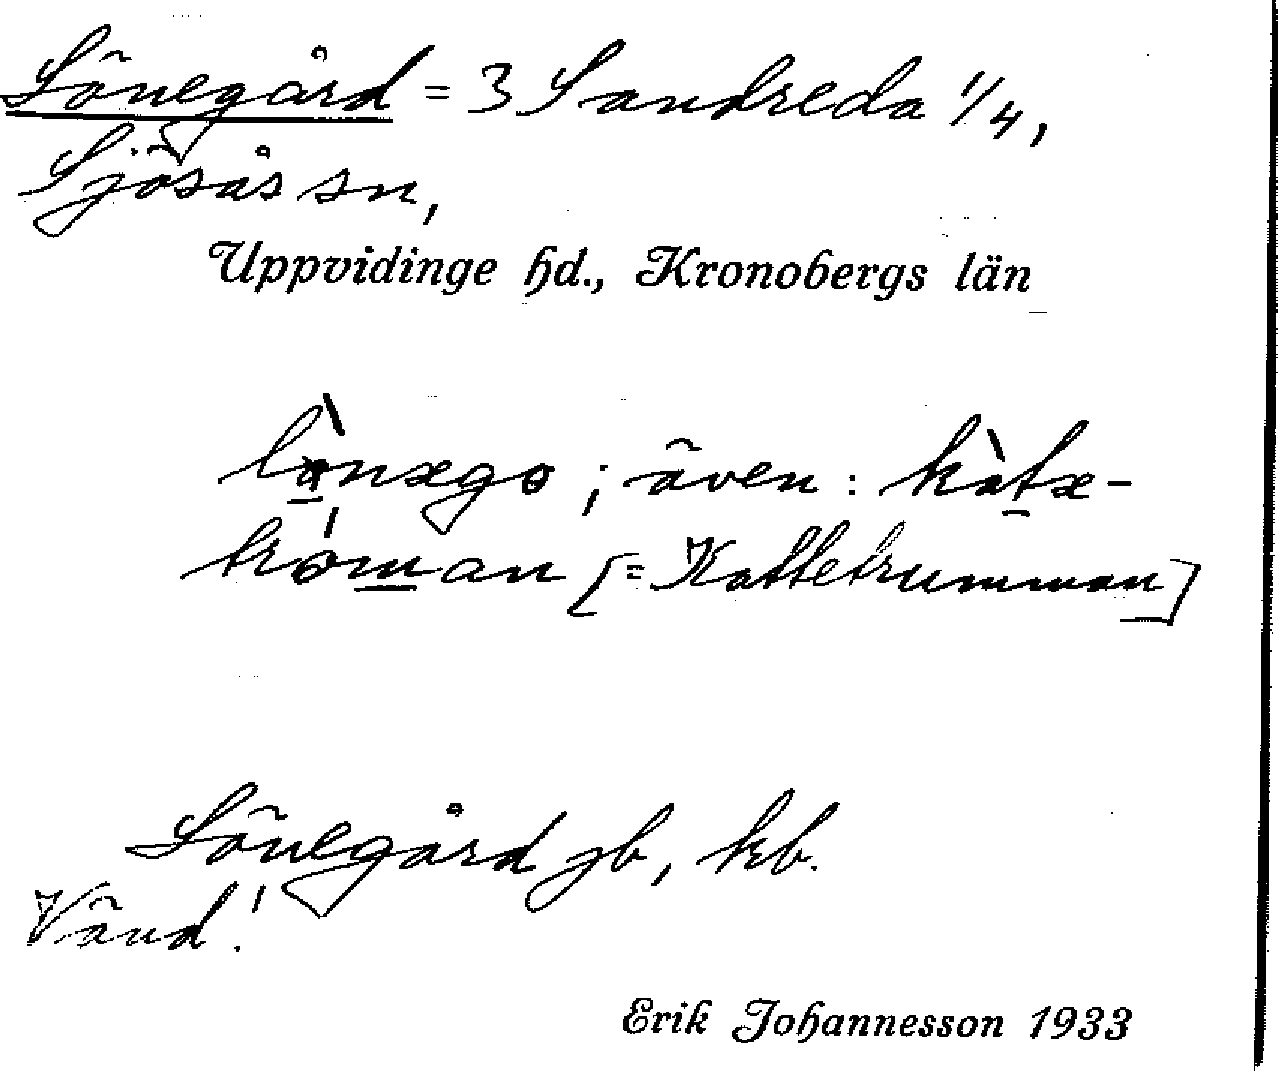 Lönegård = 3 Sandreda 1/4,
Sjösås sn,
Uppvidinge hd., Kronobergs län
även :
[= Kattetrumman]
Lönegård jb, kb.
Vänd!
Erik Johannesson 1933